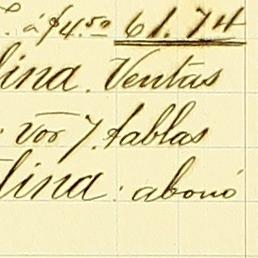 á $4.50 61.74
lina. Ventas
por 7. tablas
lina: abonó